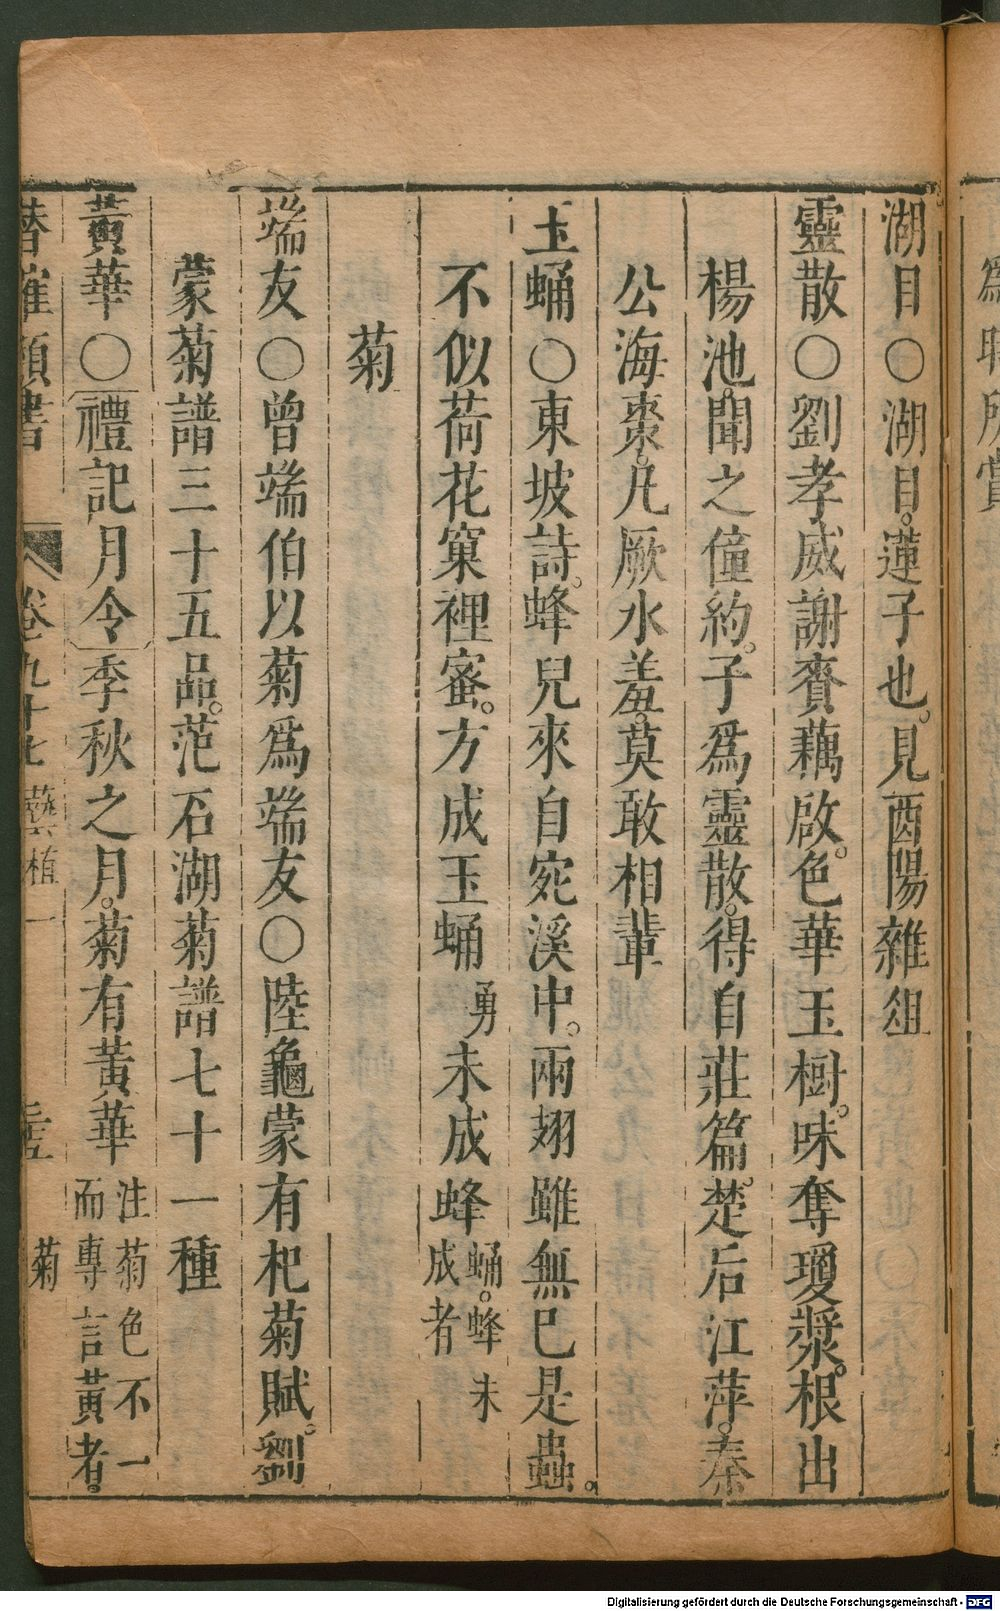 為耶所賞
湖目○湖目。蓮子也。見酉陽雜俎
靈散○劉孝威謝賚藕啟。色華玉樹。味奪瓊漿。根出
楊池。聞之僮約。子為靈散。得自莊篇。楚后江萍。秦
公海棗。凡厥水羞。莫敢相輩
玉蛹○東坡詩。蜂兒來自宛溪中。兩翅雖無已是蟲。
不似荷花窠裡蜜。方成玉蛹勇未成蜂蛹。蜂未成者
菊
端友○曾端伯以菊為端友○陸龜蒙有杞菊賦。劉
蒙菊譜三十五品。范石湖菊譜七十一種
黃華○禮記月令季秋之月。菊有黃華注菊色不一而專言黃者。
卷九十七 藝植一 菊
Digitalisierung gefördert durch die Deutsche Forschungsgemeinschaft - DFG